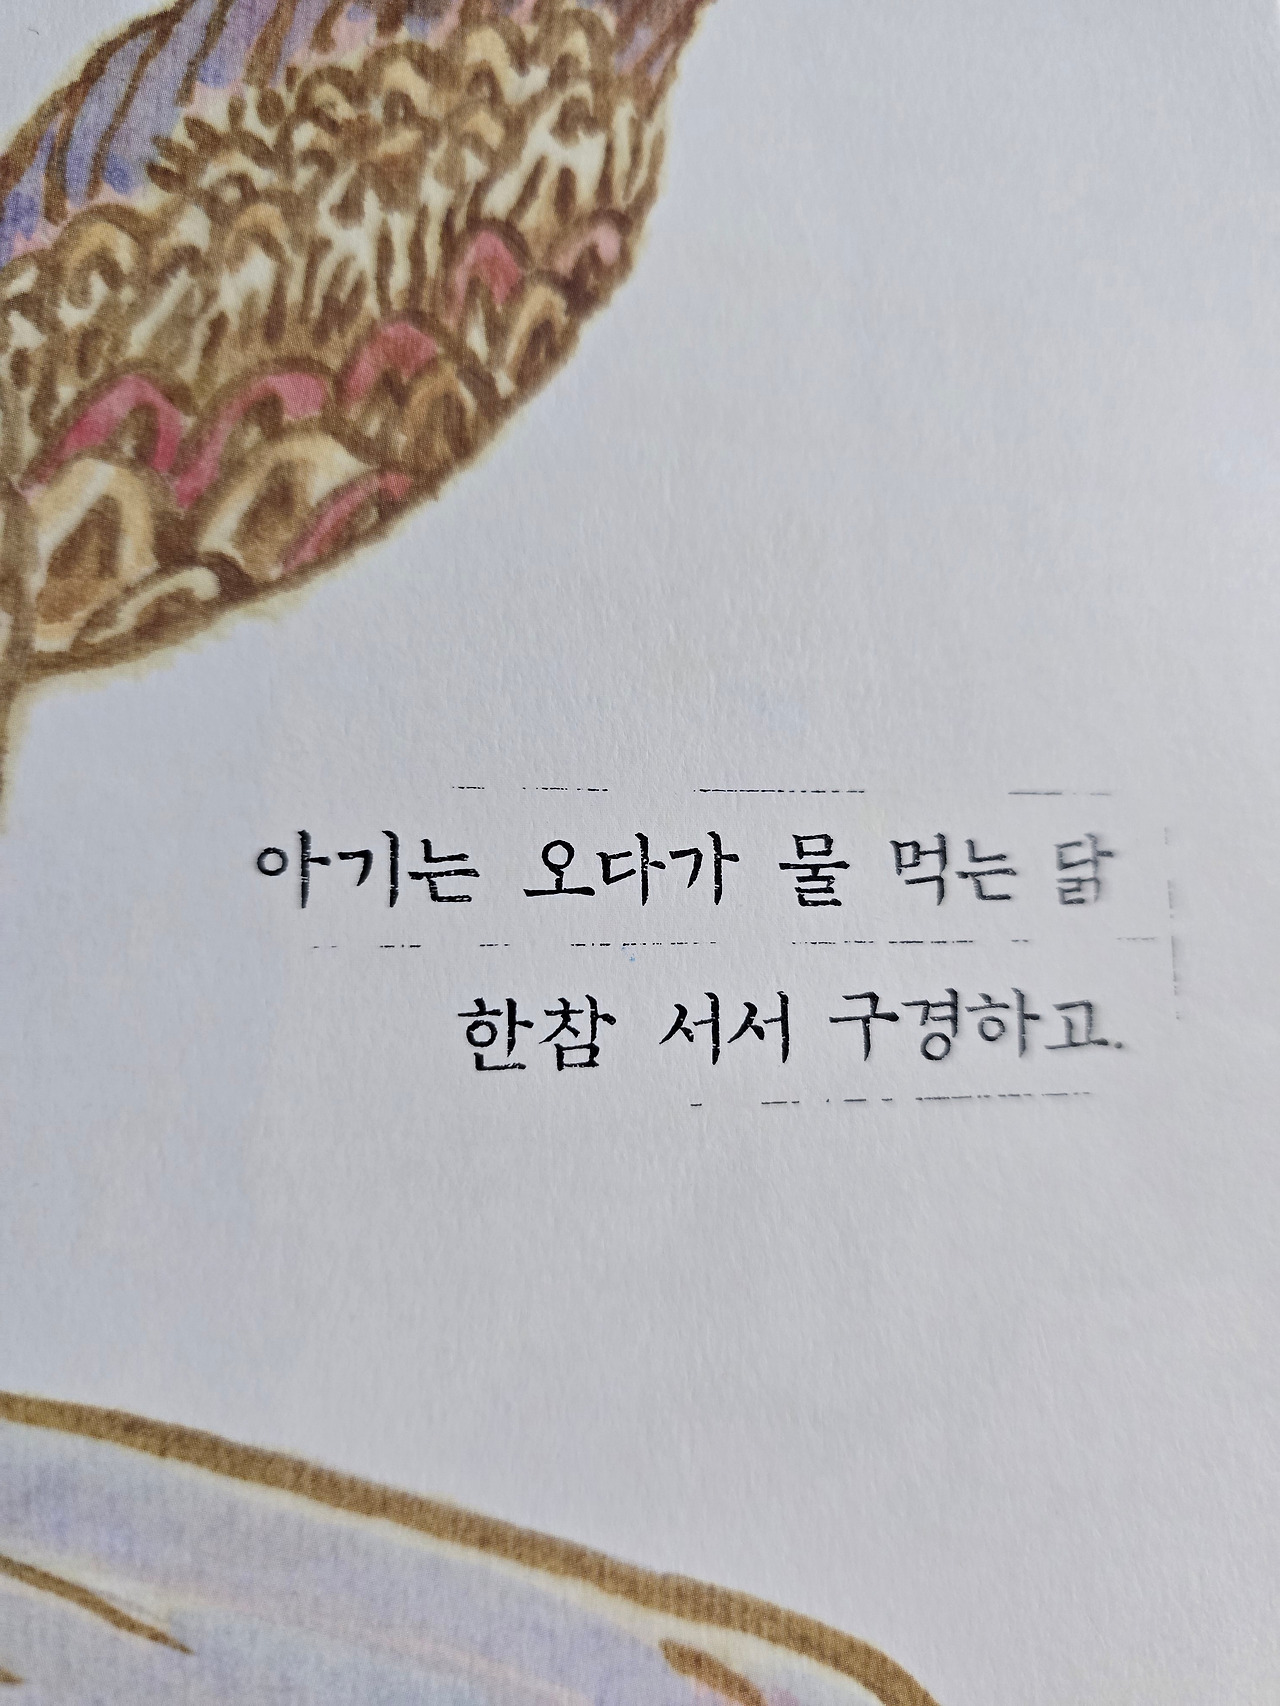 아기는 오다가 물 먹는 닭
한참 서서 구경하고.